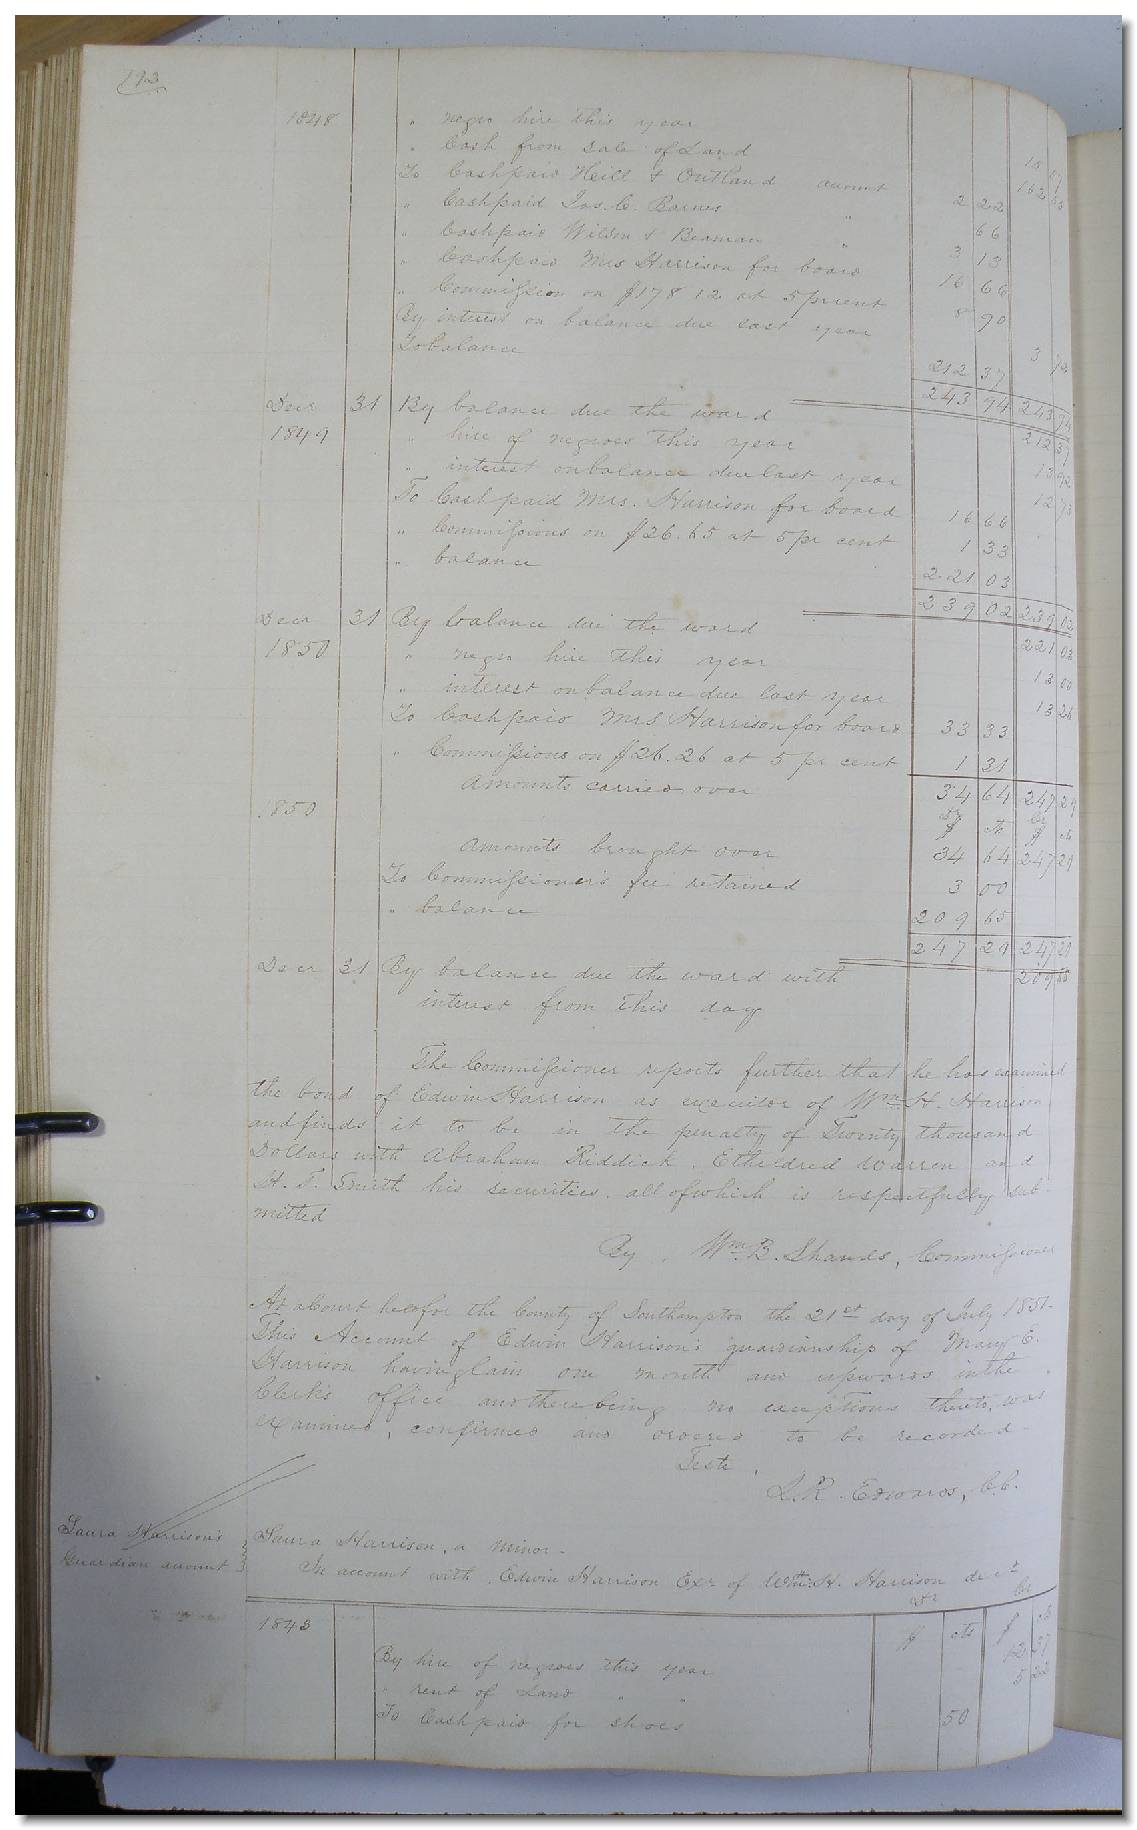 192
1848 " negro hire this year
" Cash from sale of Land 162
To Cash paid Neill & Outland account 2 22
" Cash paid Jos. C. Barnes " 66
" Cash paid Wilson & Beaman " 3 13
" Cash paid Mrs Harrison for board 16 66
" Commission on $178 12 at 5 pr cent 8 90
By interest on balance due last year 3
To balance 212 37
243 94 243 94
Decr 31 By balance due the ward 212 37
1849 " hire of negroes this year 13 92
" interest on balance due last year 12 73
To Cash paid Mrs. Harrison for board 16 66
" Commissions on $26.65 at 5 pr cent 1 33
" balance 2 21 03
239 02 239 02
Decr 31 By balance due the ward 221 03
1850 " negro hire this year 13 00
" interest on balance due last year 13 26
To Cash paid Mrs Harrison for board 33 33
" Commissions on $26.26 at 5 pr cent 1 31
Amounts carried over 34 64 247 29
1850 Dr Cr
$ cts $ cts
Amounts brought over 34 64 247 29
To Commissioner's fee retained 3 00
" balance 209 65
247 29 247 29
Decr 31 By balance due the ward with 209 65
interest from this day
The Commissioner reports further that he has examined
the bond of Edwin Harrison as executor of Wm. H. Harrison
and finds it to be in the penalty of Twenty thousand
Dollars with Abraham Riddick, Etheldred Warren and
H. T. Smith his securities. all of which is respectfully sub-
mitted
By. Wm. B. Shands, Commissioner
At a Court held for the County of Southampton the 21st day of July 1851.
This Account of Edwin Harrison's guardianship of Mary E.
Harrison having lain one month and upwards in the
Clerk's office and there being no exceptions thereto, was
examined, confirmed and ordered to be recorded.
Teste,
L. R. Edwards, C.C.
Laura Harrison's
Guardian account
Laura Harrison, a minor-
In account with Edwin Harrison Exr of Wm. H. Harrison decd
Dr Cr
1843 $ cts $ cts
By hire of negroes this year 12 37
" rent of Land " " 5 22
To Cash paid for shoes 50